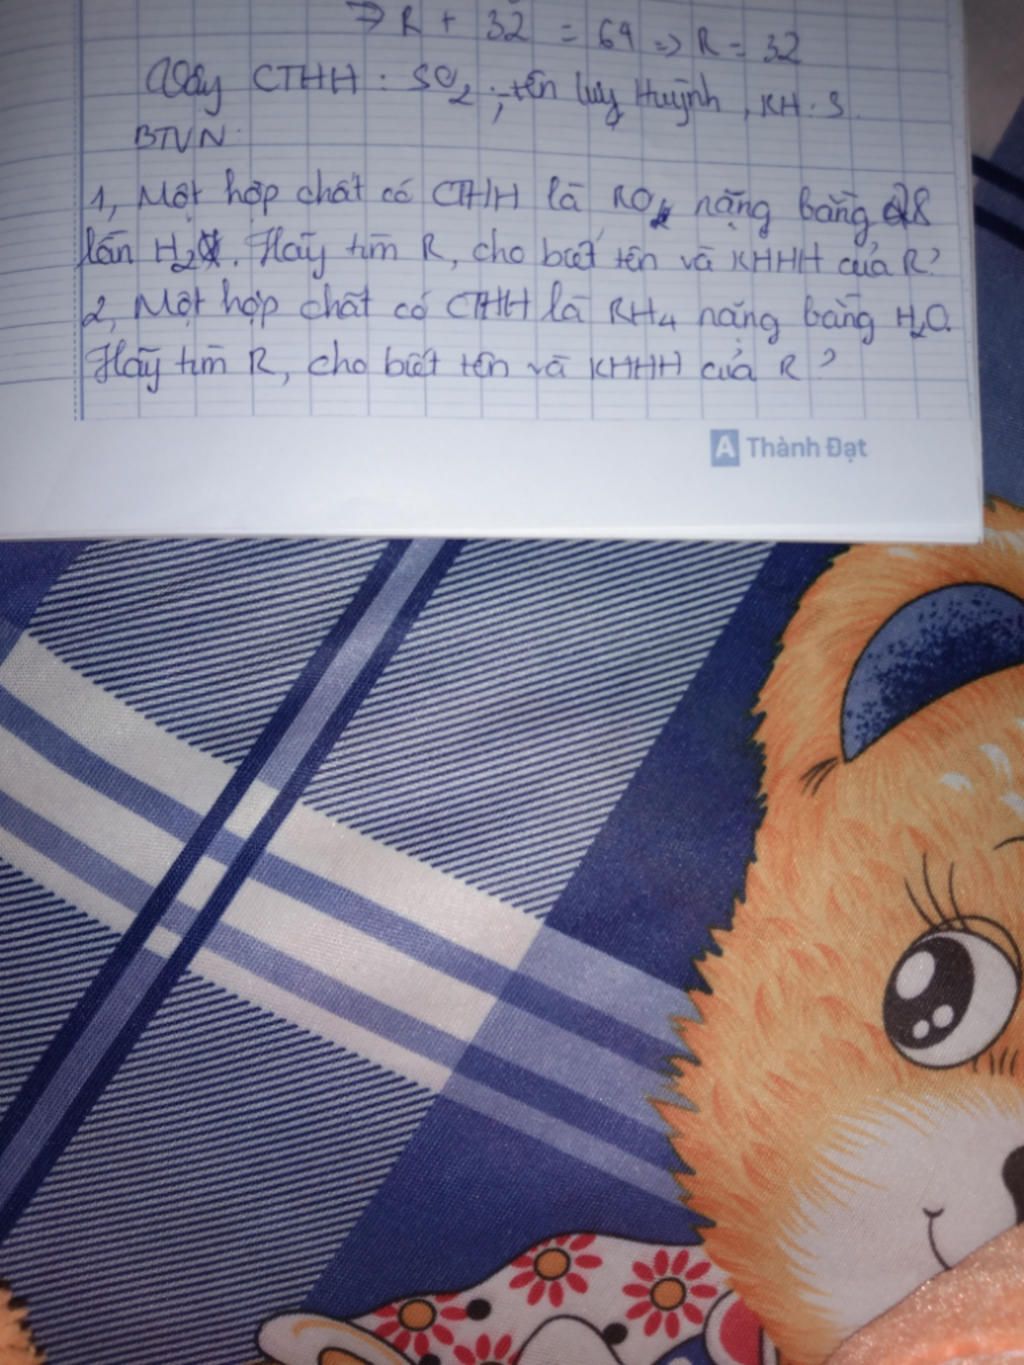 => R + 32 = 64 => R = 32
Vậy CTHH : SO2 ; tên lưu Huỳnh , KH : S.
BTVN:
1, Một hợp chất có CTHH là RO nặng bằng 28
lần H2. Hãy tìm R, cho biết tên và KHHH của R?
2, Một hợp chất có CTHH là RH4 nặng bằng H2O.
Hãy tìm R, cho biết tên và KHHH của R?
A Thành Đạt